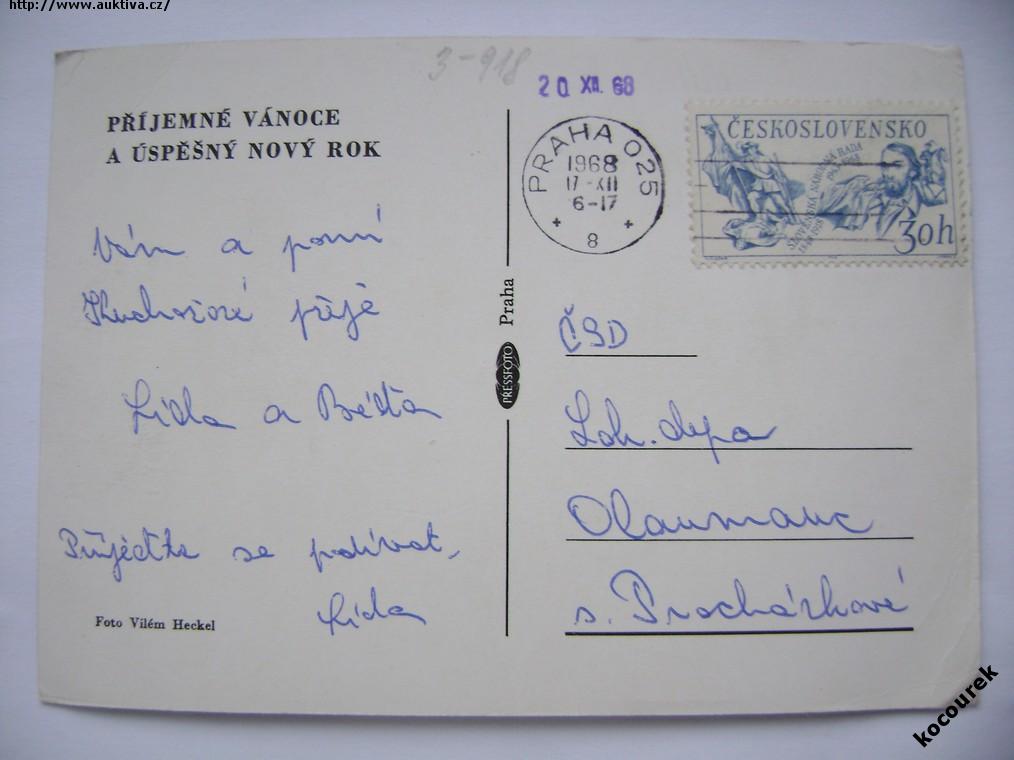 http://www.auktiva.cz/
3-918
20 XII. 68
PŘÍJEMNÉ VÁNOCE
A ÚSPĚŠNÝ NOVÝ ROK
PRAHA 025
1968
17-XII
6-17
8
ČESKOSLOVENSKO
SLOVENSKÁ NÁRODNÁ RADA
30h
Vám a paní
přeje
Lída a Béďa
Přijeďte se podívat.
Lída
Foto Vilém Heckel
PRESSFOTO Praha
ČSD
Lok. depo
Olomouc
s. Procházkové
kocourek